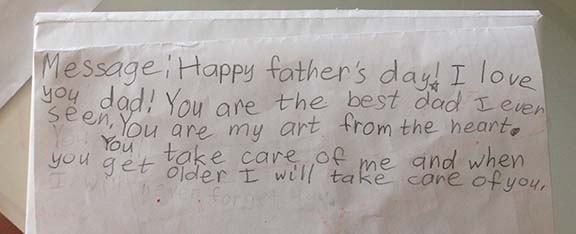 Message: Happy father's day! I love
you dad! You are the best dad I ever
seen, You are my art from the heart.
You take care of me and when
you get older I will take care of you.
I will never forget you